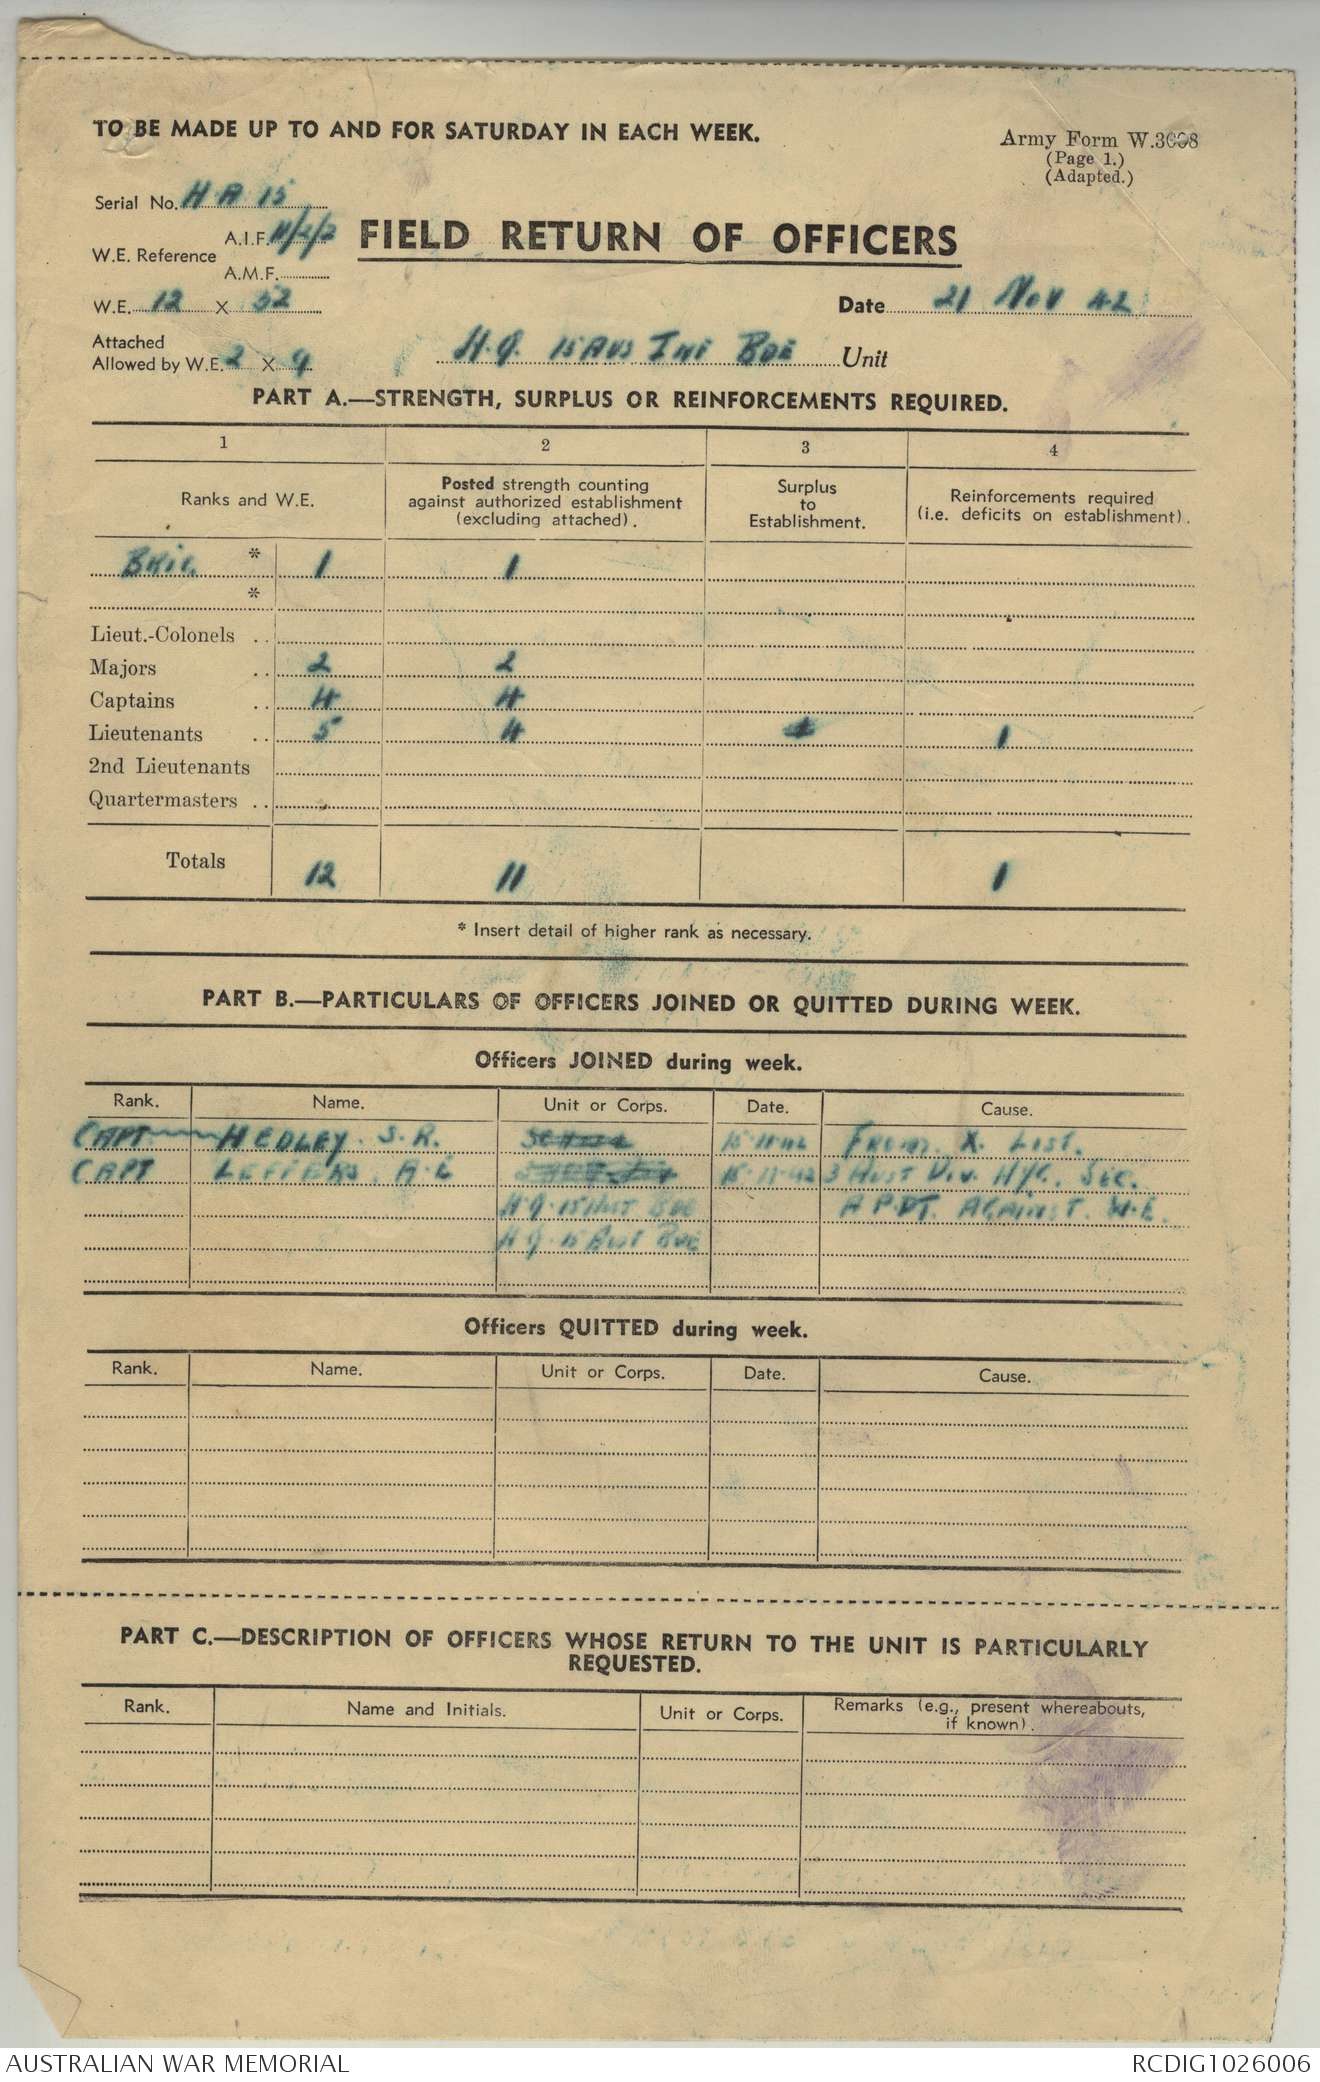 TO BE MADE UP TO AND FOR SATURDAY IN EACH WEEK.
Army Form W.3008
(Page 1.)
(Adapted.)
Serial No. HA 15
W.E. Reference
A.I.F. 11/2/2
A.M.F.
FIELD RETURN OF OFFICERS
W.E. 12 X 52
Date 21 Nov 42
Attached
Allowed by W.E. 2 X 9
H.Q. 15 AUS INF BDE Unit
PART A.—STRENGTH, SURPLUS OR REINFORCEMENTS REQUIRED.
1 2 3 4
Ranks and W.E.
Posted strength counting
against authorized establishment
(excluding attached).
Surplus
to
Establishment.
Reinforcements required
(i.e. deficits on establishment).
BRIG. * 1 1
*
Lieut.-Colonels ..
Majors .. 2 2
Captains .. 4 4
Lieutenants .. 5 4 1
2nd Lieutenants
Quartermasters ..
Totals 12 11 1
* Insert detail of higher rank as necessary.
PART B.—PARTICULARS OF OFFICERS JOINED OR QUITTED DURING WEEK.
Officers JOINED during week.
Rank. Name. Unit or Corps. Date. Cause.
CAPT HEDLEY. S.R. 15-11-42 FROM X LIST.
CAPT LEFFERS. A.L 15-11-42 3 AUST DIV. HYG. SEC.
H.Q. 15 AUST BDE APPT. AGAINST W.E.
H.Q. 15 AUST BDE
Officers QUITTED during week.
Rank. Name. Unit or Corps. Date. Cause.
PART C.—DESCRIPTION OF OFFICERS WHOSE RETURN TO THE UNIT IS PARTICULARLY
REQUESTED.
Rank. Name and Initials. Unit or Corps. Remarks (e.g., present whereabouts,
if known).
AUSTRALIAN WAR MEMORIAL
RCDIG1026006